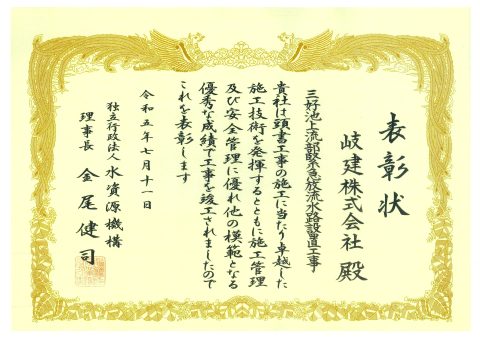 表彰状
岐建株式会社 殿
三好池上流部緊急放流水路設置工事
貴社は頭書工事の施工に当たり卓越した
施工技術を発揮するとともに施工管理
及び安全管理に優れ他の模範となる
優秀な成績で工事を竣工されましたので
これを表彰します
令和五年七月十一日
独立行政法人水資源機構
理事長 金尾健司